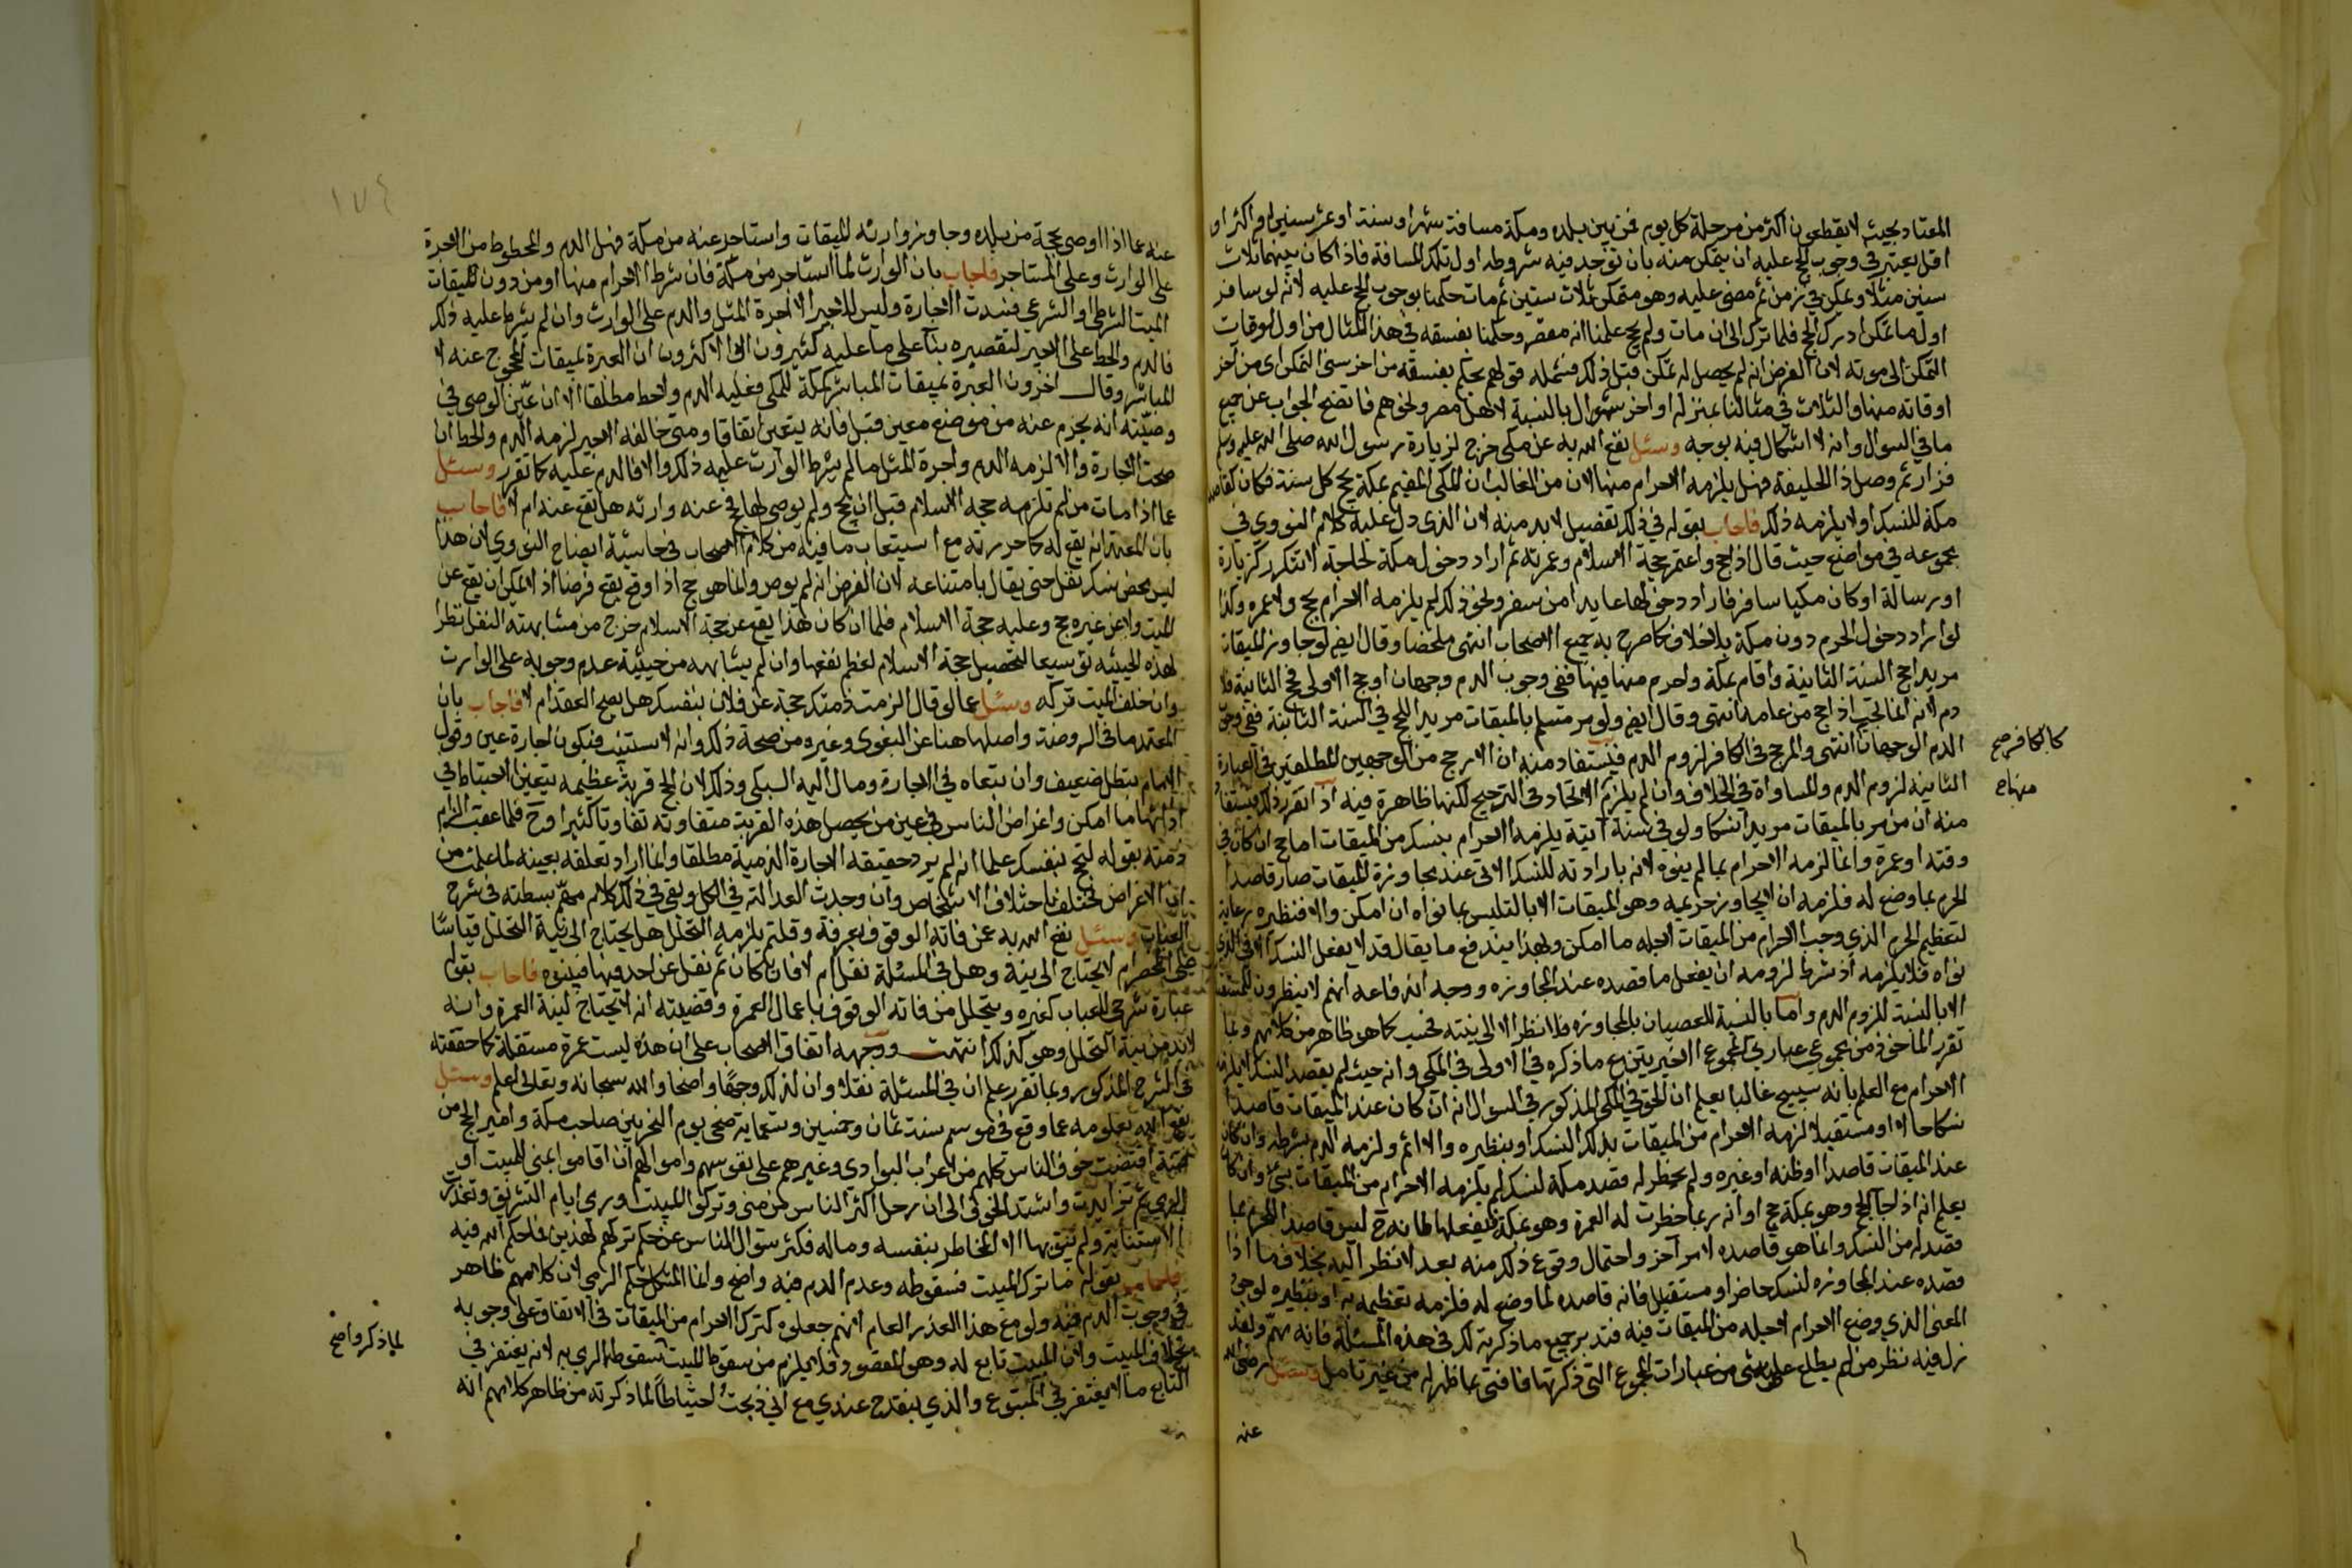 المعتاد بحيث لا يقطعون اكثر من مرحلة كل يوم فمن بين بلده ومكة مسافة شهر او سنة او عشر سنين او اكثر او
اقل يعتبر في وجوب الحج عليه ان يتمكن منه بان توجد فيه شروطه اول تلك المسافة فاذا كان بينهما ثلاث
سنين مثلا وتمكن في زمن ثم مضى عليه وهو متمكن ثلاث سنين ثم مات حكمنا بوجوب الحج عليه لانه لو سافر
اول ما تمكن ادرك الحج فلما ترك الى ان مات ولم يحج علمنا انه مقصر وحكمنا بفسقه في هذا المثال من اول اوقات
التمكن الى موته لان الفرض انه لم يحصل له تمكن قبل ذلك فشمله قولهم يحكم بفسقه من اخر سني التمكن اى من آخر
اوقاته منها والثلاث في مثالنا بمنزلة اواخر شوال بالنسبة لاهل مصر ونحوهم فاتضح الجواب عن جميع
ما في السوال وانه لا اشكال فيه بوجه وسئل نفع الله به عن مكى خرج لزيارة رسول الله صلى الله عليه وسلم
فزار ثم وصل ذا الحليفة فهل يلزمه الاحرام منها لان من الغالب ان المكى المقيم بمكة يحج كل سنة فكان كقاصد
مكة للنسك او لا يلزمه ذلك فاجاب بقوله في ذلك تفصيل لا بد منه لان الذى دل عليه كلام النووى في
مجموعه في مواضع حيث قال اذا حج واعتمر حجة الاسلام وعمرته ثم اراد دخول مكة لحاجة لا تتكرر كزيارة
او رسالة او كان مكيا سافر فاراد دخولها عايدا من سفر ونحو ذلك لم يلزمه الاحرام بحج ولا عمره وكذا
لو اراد دخول الحرم دون مكة بلا خلاف كما صرح به جميع الاصحاب انتهى ملخصا وقال ايض لو جاوز الميقات
مريدا حج السنة الثانية واقام بمكة واحرم منها فيها ففى وجوب الدم وجهان او حج الاولى فحج الثانية فلا
دم لانه انما يجب اذا حج من عامه انتهى وقال ايض ولو مر مسلم بالميقات مريدا للحج في السنة الثانية ففى وجوب
الدم الوجهان انتهى والمرجح في الكافر لزوم الدم فيستفاد منه ان الارجح من الوجهين المطلقين في العبارة
كالكافر صح
الثانية لزوم الدم والمساواة في الخلاف وان لم يلزم الاتحاد في الترجيح لكنها ظاهرة فيه اذا تقرر ذلك فيستفاد
منهاج
منه ان من مر بالميقات مريدا نسكا ولو في سنة آتية يلزمه الاحرام بنسك من الميقات اما حج ان كان في
وقته او عمرة وانما لزمه الاحرام بما لم ينوه لانه بارادته للنسك الاتى عند مجاوزة الميقات صار قاصدا
للحرم بما وضع له فلزمه ان لا يجاوز حريمه وهو الميقات الا بالتلبس بما نواه ان امكن والا فنظيره رعاية
لتعظيم الحرم الذي وجب الاحرام من الميقات لاجله ما امكن وبهذا يندفع ما يقال قد لا يفعل النسك الا في الذي
نواه فلا يلزمه اذ شرط لزومه ان يفعل ما قصده عند المجاوزه ووجه اندفاعه انهم لا ينظرون للمستقبل
الا بالنسبة للزوم الدم واما بالنسبة للعصيان بالمجاوزه فلا نظر الا الى نيته فحسب كما هو ظاهر من كلامهم وبما
تقرر الماخوذ من مجموع عبارتي المجموع الاخيرتين مع ما ذكره في الاولى في المكى وانه حيث لم يقصد النسك لا يلزمه
الاحرام مع العلم بانه سيحج غالبا يعلم ان الحق في المكى المذكور في السوال انه ان كان عند الميقات قاصدا
نسكا حالا او مستقبلا لزمه الاحرام من الميقات بذلك النسك او بنظيره والا اثم ولزمه الدم بشرطه وان كان
عند الميقات قاصدا وطنه او غيره ولم يخطر له قصد مكة لنسك لم يلزمه الاحرام من الميقات بشئ وان كان
يعلم انه اذا جا الحج وهو بمكة حج او انه ربما خطرت له العمرة وهو بمكة فيفعلها لانه ح ليس قاصدا للحرم بما
قصد له من النسك وانما هو قاصده لامر آخر واحتمال وقوع ذلك منه بعد لا نظر اليه بخلاف ما اذا
قصده عند المجاوزه لنسك حاضر او مستقبل فانه قاصده لما وضع له فلزمه تعظيمه به او بنظيره لوجود
المعنى الذي وضع الاحرام لاجله من الميقات فيه فتدبر جميع ما ذكرته لك في هذه المسئلة فانه مهم ولقد
زل فيه نظر من لم يطلع على شئ من عبارات المجموع التي ذكرتها فافتى بما ظهر له من غير تامل وسئل رضى الله
عنه
١٧٤
عنه عما اذا اوصى بحجة من بلده وجاوز وارثه الميقات واستاجر عنه من مكة فهل الدم والمحطوط من الاجرة
على الوارث وعلى المستاجر فاجاب بان الوارث لما استاجر من مكة فان شرط الاحرام منها او من دون الميقات
الميت الشرطى او الشرعي فسدت الاجارة وليس للاجير الا اجرة المثل والدم على الوارث وان لم يشرط عليه ذلك
فالدم والحط على الاجير لتقصيره بناء على ما عليه كثيرون او الاكثرون ان العبرة بميقات المحجوج عنه لا
المباشر وقال اخرون العبرة بميقات المباشر كمكة للمكى فعليه الدم ولا حط مطلقا الا ان عيّن الموصى في
وصيّته انه يحرم عنه من موضع معين قبل فانه يتعين اتفاقا ومتى خالفه الاجير لزمه الدم والحط ان
صحت الاجارة والا لزمه الدم واجرة المثل ما لم يشرط الوارث عليه ذلك والا فالدم عليه كما تقرر وسئل
عما اذا مات من لم تلزمه حجة الاسلام قبل ان يحج ولم يوصى بها فحج عنه وارثه هل تقع عنه ام لا فاجاب
بان المعتمد انه يقع له كما حررته مع استيعاب ما فيه من كلام الاصحاب في حاشية ايضاح النووى لان هذا
ليس محض نسك نفل حتى يقال بامتناعه لان الفرض انه لم يوص وانما هو حج اذا وقع يقع فرضا اذ لا يمكن ان يقع عن
الميت ولا عن غيره حج وعليه حجة الاسلام فلما ان كان هذا يقع عن حجة الاسلام خرج من مشابهته النفل نظرا
لهذه الحيثيه توسيعا لتحصيل حجة الاسلام لعظم نفعها وان لم يشابهه من حيثية عدم وجوبه على الوارث
وان خلف الميت تركه وسئل عما لو قال الزمت ذمتك حجة عن فلان بنفسك هل يصح العقد ام لا فاجاب بان
المعتمد ما في الروضة واصلها هنا عن البغوى وغيره من صحة ذلك وانه لا يستنيب فتكون اجارة عين وقول
الامام ببطل ضعيف وان تبعاه في الاجارة ومال اليه السبكى وذلك لان الحج قربة عظيمه يتعين الاحتياط في
ادائها ما امكن واغراض الناس في عين من يحصل هذه القربة متفاوته تفاوتا كثيرا وح فلما عقب الزام
ذمته بقوله لتحج بنفسك علمنا انه لم يرد حقيقة الاجارة الذمية مطلقا وانما اراد تعلقه بعينه لما علمت من
ان الاغراض تختلف باختلاف الاشخاص وان وجدت العدالة في الكل وبقي في ذلك كلام مهمّ بسطته في شرح
العباب وسئل نفع الله به عمن فاته الوقوف بعرفة وقلتم يلزمه التحلل هل يحتاج الى نية التحلل قياسًا
على المحصر ام لا يحتاج الى نية وهل في المسئلة نقل ام لا فان كان ثم نقل عن احد فبينوه فاجاب بقوله
عبارة شرحي للعباب كغيره ويتحلل من فاته الوقوف باعمال العمرة وقضيته انه لا يحتاج لنية العمرة وانه
لا بد من نية التحلل وهو كذلك انتهت ووجهه اتفاق الاصحاب على ان هذه ليست عمرة مستقلة كما حققته
في الشرح المذكور وبما تقرر علم ان في المسئلة نقلا وان لذلك وجهًا واضحا والله سبحانه وتعالى اعلم وسئل
نفع الله بعلومه عما وقع في موسم سنة ثمان وخمسين وتسعماية ضحى يوم النحر بين صاحب مكة وامير الحج من
فتنة اقتضت خوف الناس كلهم من اعراب البوادى وغيرهم على نفوسهم واموالهم ان اقاموا بمنى للمبيت او
الرمي ثم تزايدت واشتد الخوف الى ان رحل اكثر الناس من منى وتركوا المبيت ورمى ايام التشريق وتعذرت
الاستنابة ولم تثق بها الا المخاطر بنفسه وماله فكثر سؤال الناس عن حكم تركهم لهذين فما حكم الله فيه
فاجاب بقوله اما ترك المبيت فسقوطه وعدم الدم فيه واضح وانما المشكل حكم الرمي لان كلامهم ظاهر
في وجوب الدم فيه ولو مع هذا العذر العام انهم جعلوه كترك الاحرام من الميقات في الاتفاق على وجوبه
بخلاف المبيت ولان المبيت تابع له وهو المقصود فلا يلزم من سقوط المبيت سقوط الرمي به لانه يغتفر في
لما ذكر واضح
التابع ما لا يغتفر في المتبوع والذي ينقدح عندي مع اني ذبحتُ احتياطًا لما ذكرته من ظاهر كلامهم انه